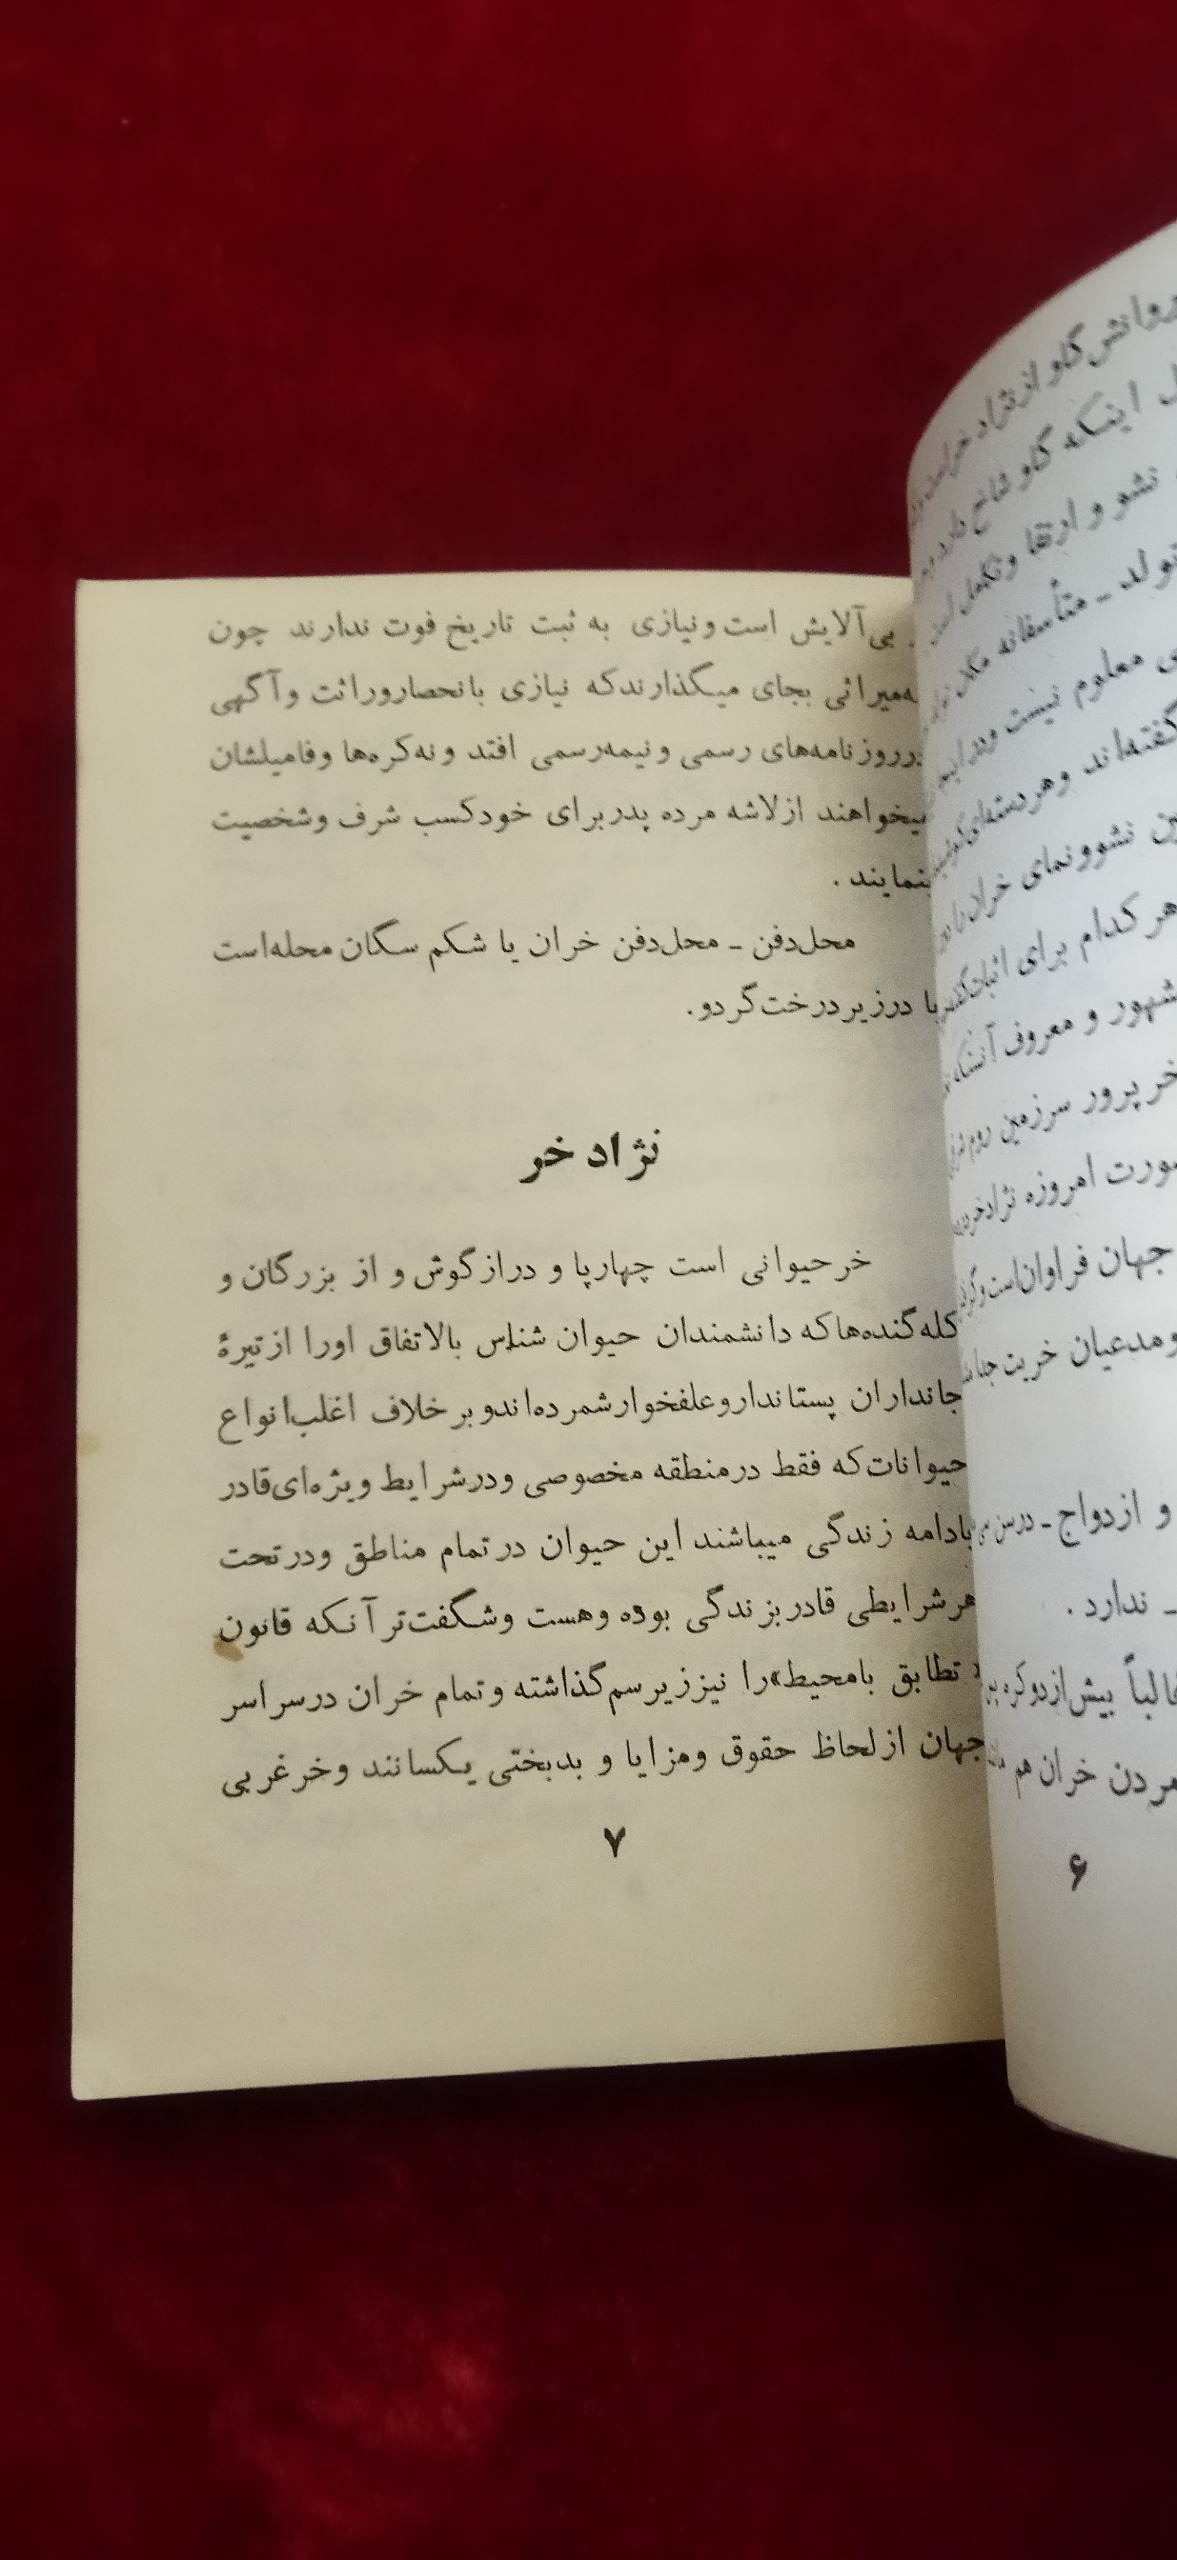 بی‌آلایش است و نیازی به ثبت تاریخ فوت ندارند چون
میراثی بجای میگذارند که نیازی بانحصار وراثت و آگهی
در روزنامه‌های رسمی و نیمه‌رسمی افتد و نه کره‌ها و فامیلشان
میخواهند از لاشه مرده پدر برای خود کسب شرف و شخصیت
بنمایند .
محل دفن ـ محل دفن خران یا شکم سگان محله است
یا در زیر درخت گردو .
نژاد خر
خر حیوانی است چهارپا و درازگوش و از بزرگان و
کله گنده‌ها که دانشمندان حیوان شناس بالاتفاق اورا از تیرهٔ
جانداران پستاندار و علفخوار شمرده‌اند و بر خلاف اغلب انواع
حیوانات که فقط در منطقه مخصوصی و در شرایط ویژه‌ای قادر
بادامه زندگی میباشند این حیوان در تمام مناطق و در تحت
هر شرایطی قادر بزندگی بوده و هست و شگفت‌تر آنکه قانون
« تطابق با محیط» را نیز زیر سم گذاشته و تمام خران در سراسر
جهان از لحاظ حقوق و مزایا و بدبختی یکسانند و خر غربی
۷
گاو از نژاد
اینکه گاو شاخ دارد
نشو و ارتقا و تکامل
تولد ـ متأسفانه
معلوم نیست و در
گفته‌اند و هر دسته‌ای
نشو و نمای خران را
هر کدام برای اثبات
و معروف
خر پرور سرزمین روم
امروزه نژاد خر
جهان فراوان است و
و مدعیان خریت
و ازدواج ـ
ـ ندارد .
بیش از دو کره
مردن خران هم
۶